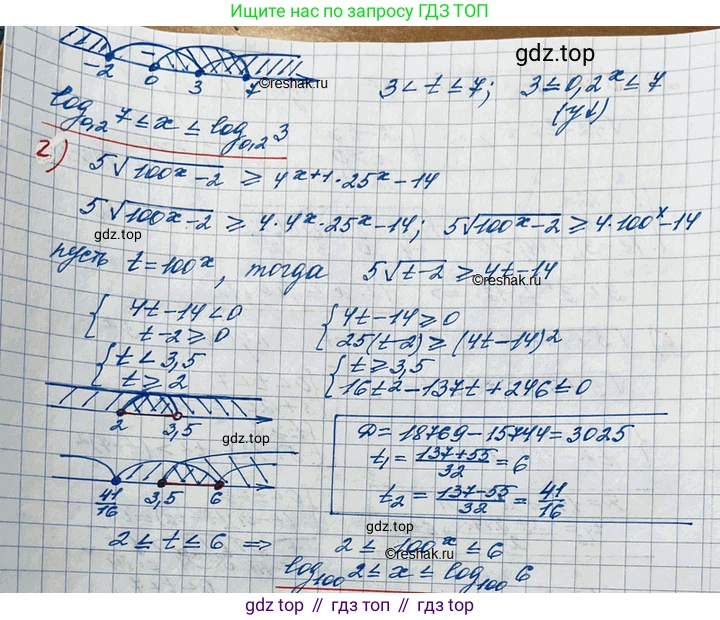 Ищите нас по запросу ГДЗ ТОП
gdz.top
-2 0 3 7
©reshak.ru
3 < t ≤ 7; 3 ≤ 0,2^x ≤ 7
(y↓)
log_{0,2} 7 ≤ x ≤ log_{0,2} 3
2)
5√(100^x-2) ≥ 4^{x+1}·25^x-14
5√(100^x-2) ≥ 4·4^x·25^x-14; 5√(100^x-2) ≥ 4·100^x-14
gdz.top
пусть t=100^x, тогда 5√(t-2) ≥ 4t-14
©reshak.ru
{ 4t-14<0
t-2≥0
{ 4t-14≥0
25(t-2)≥(4t-14)^2
{ t<3,5
t≥2
{ t≥3,5
16t^2-137t+246≤0
2 3,5
gdz.top
D=18769-15744=3025
t_1=(137+55)/32=6
t_2=(137-55)/32=41/16
41/16 3,5 6
gdz.top
2≤t≤6 ⇒ 2≤100^x≤6
©reshak.ru
log_{100} 2≤x≤log_{100} 6
gdz.top // гдз топ // gdz top // гдз.топ